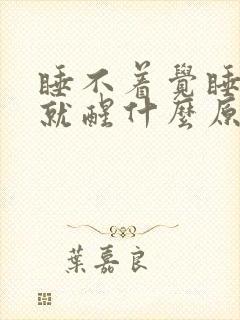 睡不着覺睡
就醒什麼原
葉嘉良